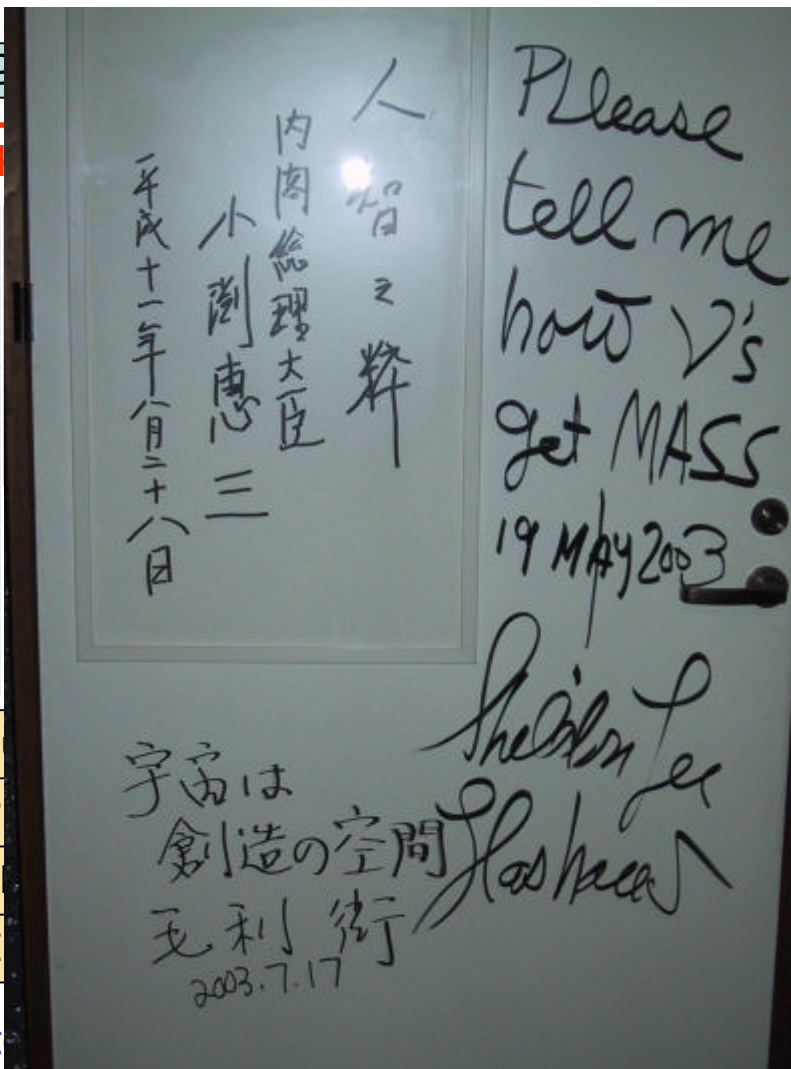 人智之粋
内閣総理大臣
小渕恵三
平成十一年八月二十八日
PLlease
tell me
how ν's
get MASS
19 MAY 2003
Sheldon Lee
Glashow
宇宙は
創造の空間
毛利 衛
2003.7.17